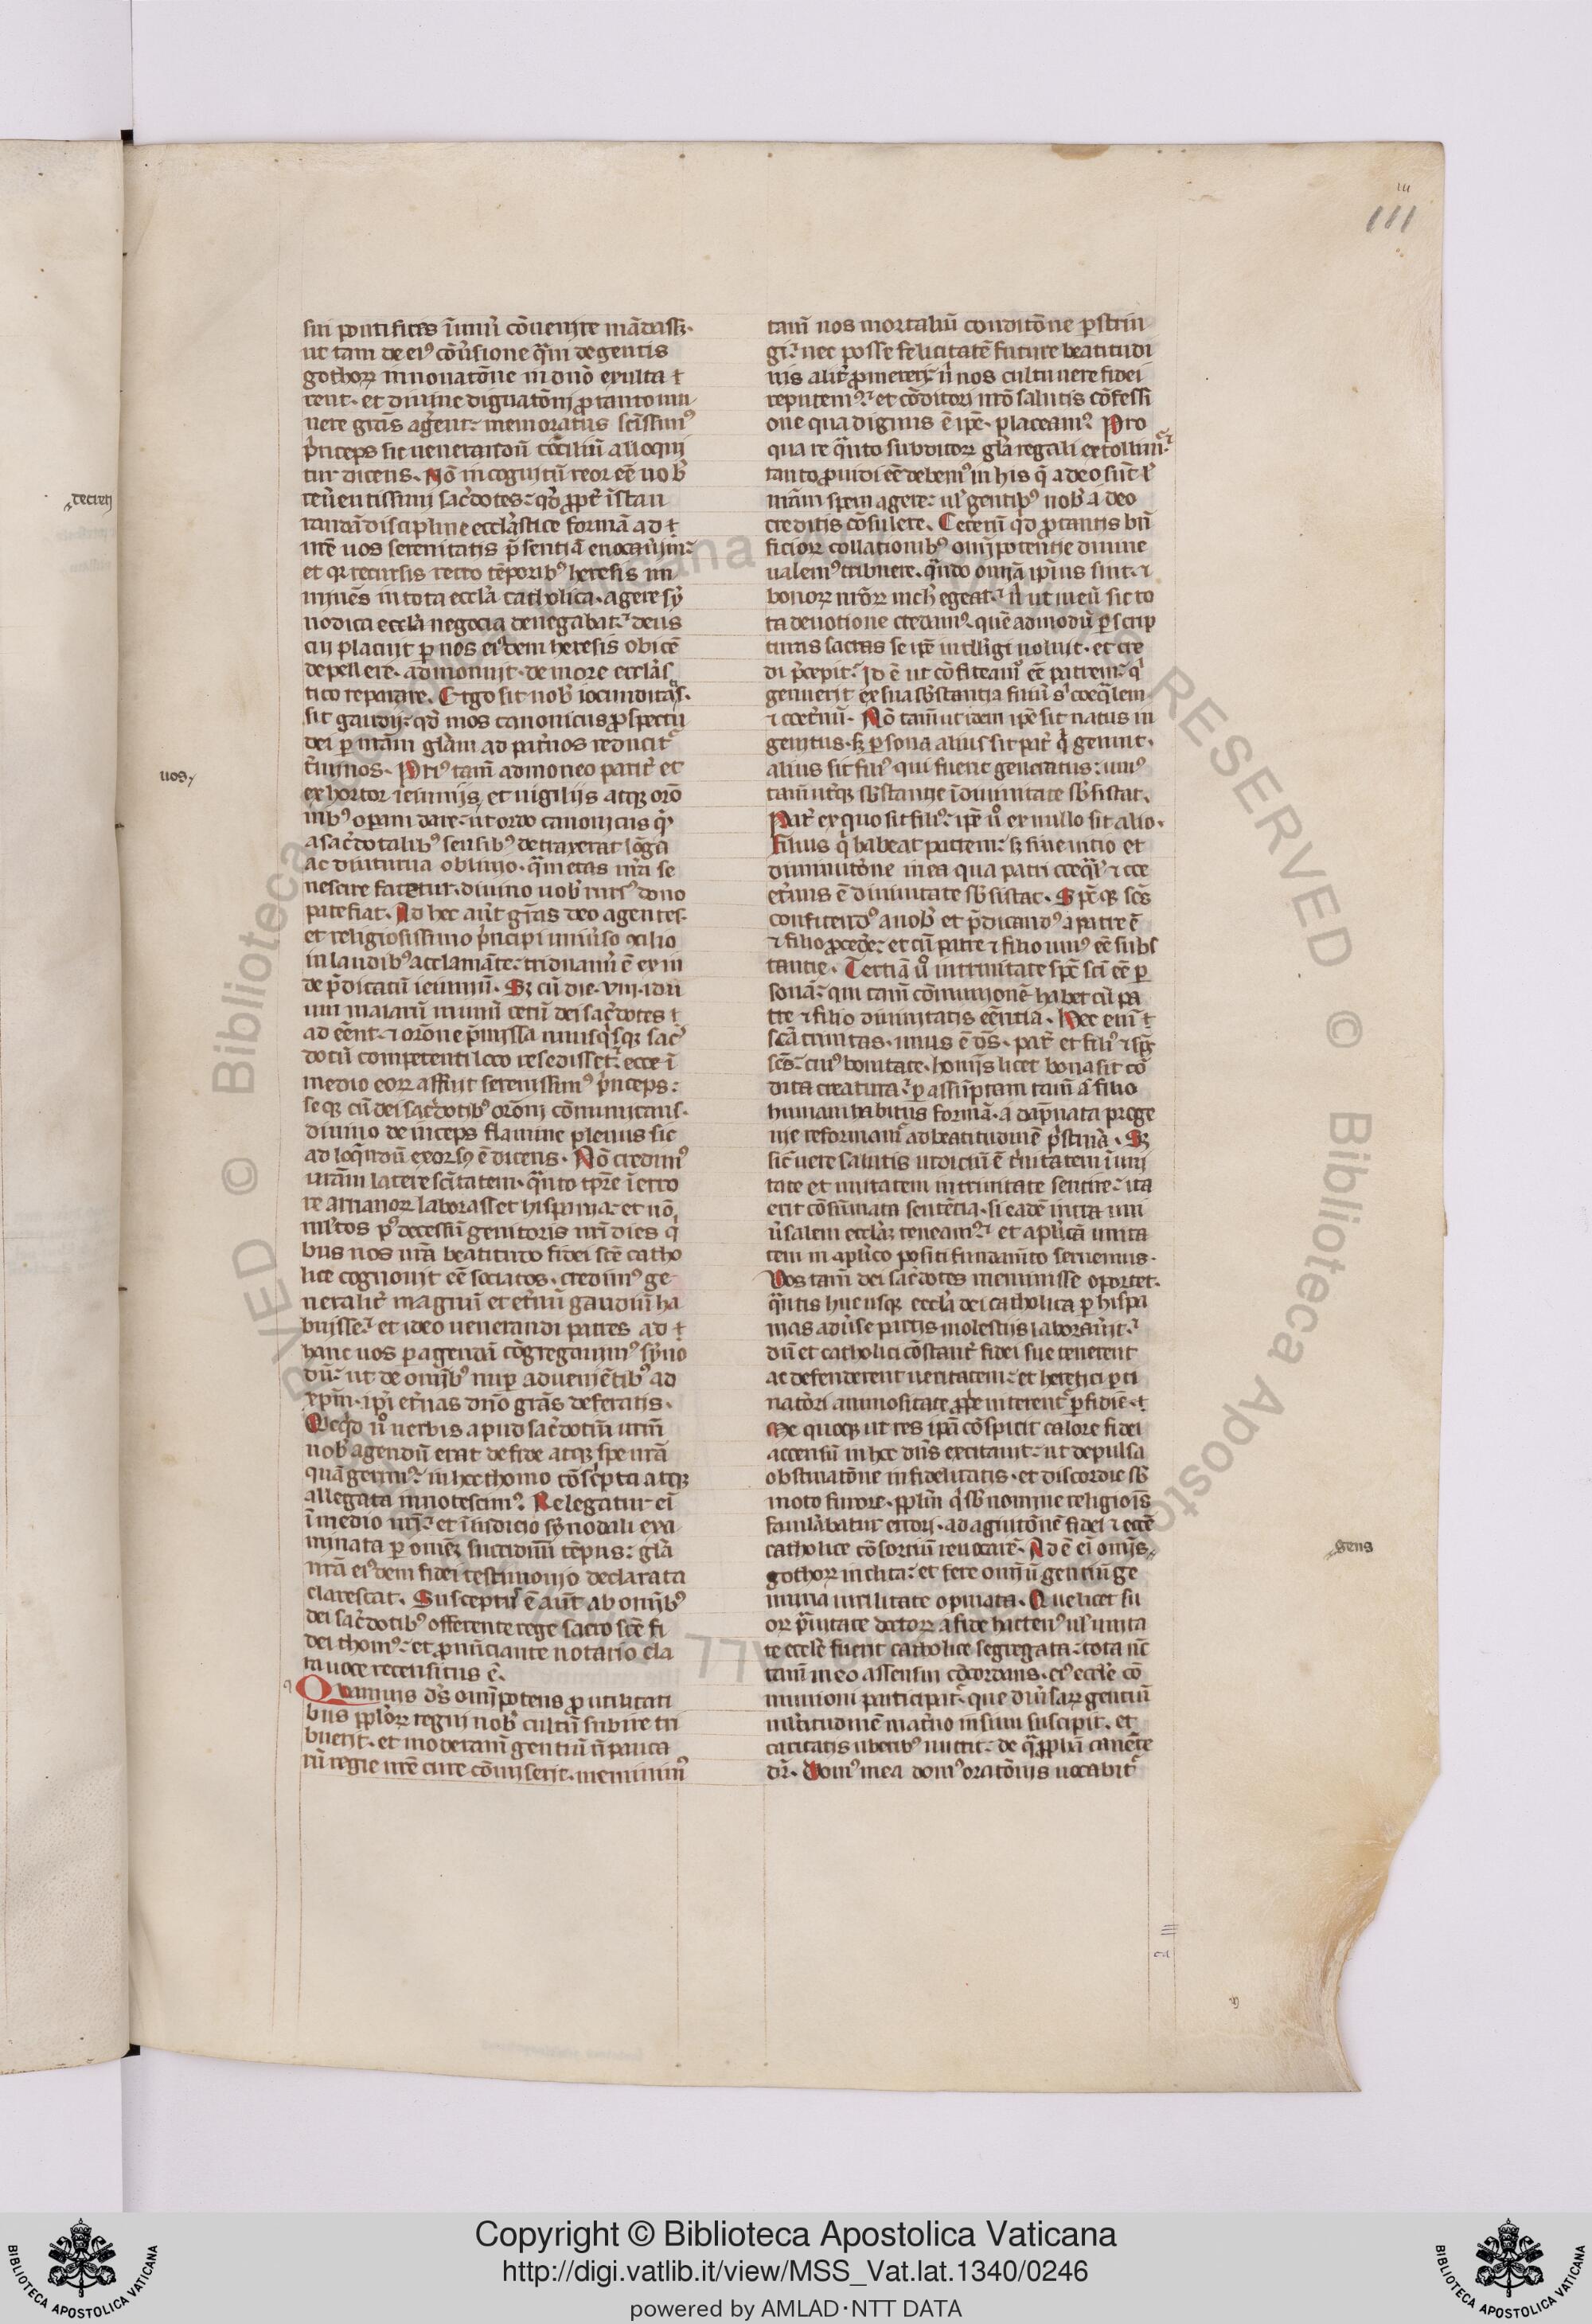 111
sui pontifices ī unū cōuenire mādasset.
ut tam de eiꝰ cōuersione q̄m de gentis
gothoꝝ innouatōne in dnō exulta
rent. et diuine dignatōnj pro tanto mu
nere grās agerent memoratus scīssimꝰ
princeps sic uenerandū cōciliū alloqui
tur dicens. Nō incognitū reor eē uob̄
reuerentissimi sacerdotes qd̄ propter īstau
randā discipline ecclāstice formā ad
me uos serenitatis p̄sentiā euocauerim
et quia recursis retro tēporibꝰ heresis im
minēs in tota ecclā catholica. agere sy
nodica ecclā negocia denegabat deus
cui placuit per nos eiꝰdem heresis obicē
depellere. admonuit. de more ecclās
tico reparare. Ergo sit nob̄ iocunditas.
sit gaudij qd̄ mos canonicus prospectu
dei per nrām glām ad paternos reducitur
terminos. Priꝰ tam̄ admoneo pariter et
exhortor ieiunijs et uigilijs atqꝫ orō
nibꝰ operam dare ut ordo canonicus qui
a sacerdotalibꝰ sensibꝰ detraxerat lōga
ac diuturna obliuio. q̄m etas nrā se
nescire fatetur. diuino uob̄ rursꝰ dono
patefiat. Ad hec aut̄ grās deo agentes.
et religiosissimo principi uniuerso cōcilio
in laudibꝰ acclamāte triduanū ē exin
de p̄dicatū ieiuniū. Sꝫ cū die. viii. idu
um maiarū in unū cetū dei sacerdotes
adeēnt. et orōne p̄missa unusquisqꝫ sacer
dotū competenti loco resedisset ecce ī
medio eoꝝ affuit serenissimꝰ princeps
seqꝫ cū dei sacerdotibꝰ orōnj cōmunicans.
diuino deinceps flamine plenus sic
ad loquendū exorsus ē dicens. Nō credimꝰ
urām latere scītatem. quanto tp̄re ī erro
re arrianoꝝ laborasset hispania et nō
multos post decessū genitoris nrī dies qui
bus nos urā beatitudo fidei scē catho
lice cognouit eē sociatos. credimꝰ ge
neraliter magnū et eternū gaudiū ha
buisse et ideo uenerandi patres ad
hanc uos peragendā cōgregauimꝰ syno
dū ut de omībꝰ nuper aduenientibꝰ ad
xp̄m. ipi eternas dnō grās deferatis.
Quicqd̄ uero uerbis apud sacerdotiū urm̄
nob̄ agendū erat de fide atqꝫ spe urā
quā gerimꝰ in hoc thomo cōscripta atqꝫ
allegata innotescimꝰ. Relegatur eī
ī medio urī et ī iudicio synodali exa
minata per omēꝫ succiduū tēpus glā
nrā eiꝰdem fidei testimonjo declarata
clarescat. Susceptus ē aut̄ ab omībꝰ
dei sacerdotibꝰ offerente rege sacro scē fi
dei thomꝰ et pronūciante notario cla
ra uoce recensitus ē.
Quamuis ds̄ omīpotens pro utilitati
bus pploꝝ regni nob̄ cultū subire tri
buerit. et moderam̄ gentiū n̄ pauca
rū regie nrē cure cōmiserit. meminimꝰ
tam̄ nos mortaliū conditōne perstrin
gi nec posse felicitatē future beatitudi
nis aliter promereri ni nos cultu uere fidei
reputemꝰ et cōditori nrō salutis cōfessi
one qua dignus ē ipē. placeamꝰ Pro
qua re quanto subditoꝝ glā regali extollimur
tanto prouidi eē debemꝰ in his q̄ a deo sūt uel
nrām spem agere uel gentibꝰ nob̄ a deo
creditis cōsulere. Ceterū qd pro tantis bn̄
ficioꝝ collationibꝰ omīpotentie diuine
ualemꝰ tribuere. quando omīa ipsius sint et
bonoꝝ nrōꝝ nich egeat ni ut in eū sic to
ta deuotione credamꝰ. quē admodū per scrip
turas sacras se ipē intelligi uoluit. et cre
di precepit Id ē ut cōfiteamur eē patrem qui
genuerit ex sua sb̄stantia filiū s̄ coequalem
et coeternū. Nō tam̄ ut idem ipē sit natus in
genitus. sꝫ persona alius sit pater qui genuit.
alius sit filꝰ qui fuerit generatus uniꝰ
tam̄ uterqꝫ sb̄stantie ī diuinitate sb̄sistat.
Pater ex quo sit filiꝰ ipē uero ex nullo sit alio.
Filius qui habeat patrem sꝫ sine initio et
diminutōne in ea qua patri coequalis et coe
eternus ē diuinitate sb̄sistat. Spc̄ qꝫ scs̄
confitendꝰ a nob̄ et p̄dicandꝰ a patre ē
et filio procedere et cū patre et filio uniꝰ eē subs
tantie. Tertiā uero in trinitate spc̄ scī eē per
sonā qui tam̄ cōmunionē habet cū pa
tre et filio diuinitatis eēntia. Hec enī
scā trinitas. unus ē ds̄. pater et filiꝰ et spc̄
scs̄ cuiꝰ bonitate. hominis licet bona sit cō
dita creatura per assūptam tam̄ a filio
humani habitus formā. a dāpnata proge
nie reformamur ad beatitudinē pristinā. Sꝫ
sicut uere salutis indiciū ē trinitatem ī uni
tate et unitatem in trinitate sentire ita
erit cōsūmata sentētia. si eadē intra uni
uersalem ecclāꝫ teneamꝰ et aplicā unita
tem in aplico positi fundamēto seruemus.
Uos tam̄ dei sacerdotes meminisse oportet.
quantis hucusqꝫ ecclā dei catholica per hispa
nias aduerse partis molestijs laborauerit
dū et catholici cōstanter fidei sue tenerent
ac defenderent ueritatem et heretici perti
natiori animositate proprie niterentur perfidie.
Me quoqꝫ ut res ipā cōspicit calore fidei
accensū in hoc dns̄ excitauit ut depulsa
obstinatōne infidelitatis. et discordie sb̄
moto furore. pplm̄ qui sb̄ nomine religiois
famulabatur errori. ad agnitōnē fidei et eccē
catholice cōsortiū reuocarē. Adē ei omīs
gothoꝝ inclita et fere omīū gentiū ge
nuina uirilitate opinata. Que licet su
oꝝ prauitate doctoꝝ a fide hactenꝰ uel unita
te eccle fuerit catholice segregata tota nūc
tam̄ meo assensu cōcordans. eiꝰ eccle cō
munioni participatur que diuersaꝝ gentiū
multitudinē materno in sinu suscipit. et
caritatis uberibꝰ nutrit de qua ppha canēte
dr̄. Domꝰ mea domꝰ oratōnis uocabitur
decreti
uos
gens
Copyright © Biblioteca Apostolica Vaticana
http://digi.vatlib.it/view/MSS_Vat.lat.1340/0246
powered by AMLAD·NTT DATA
BIBLIOTECA APOSTOLICA VATICANA
BIBLIOTECA APOSTOLICA VATICANA